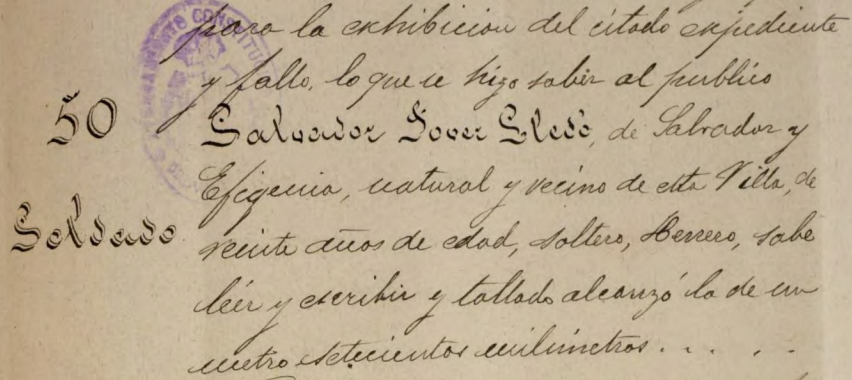 para la exhibicion del citado expediente
y fallo, lo que se hizo saber al publico
50
Salvador Jover Lledó, de Salvador y
Efigenia, natural y vecino de esta Villa, de
Soldado
veinte años de edad, soltero, Herrero, sabe
leér y escribir y tallado alcanzó la de un
metro setecientos milimetros. . . .